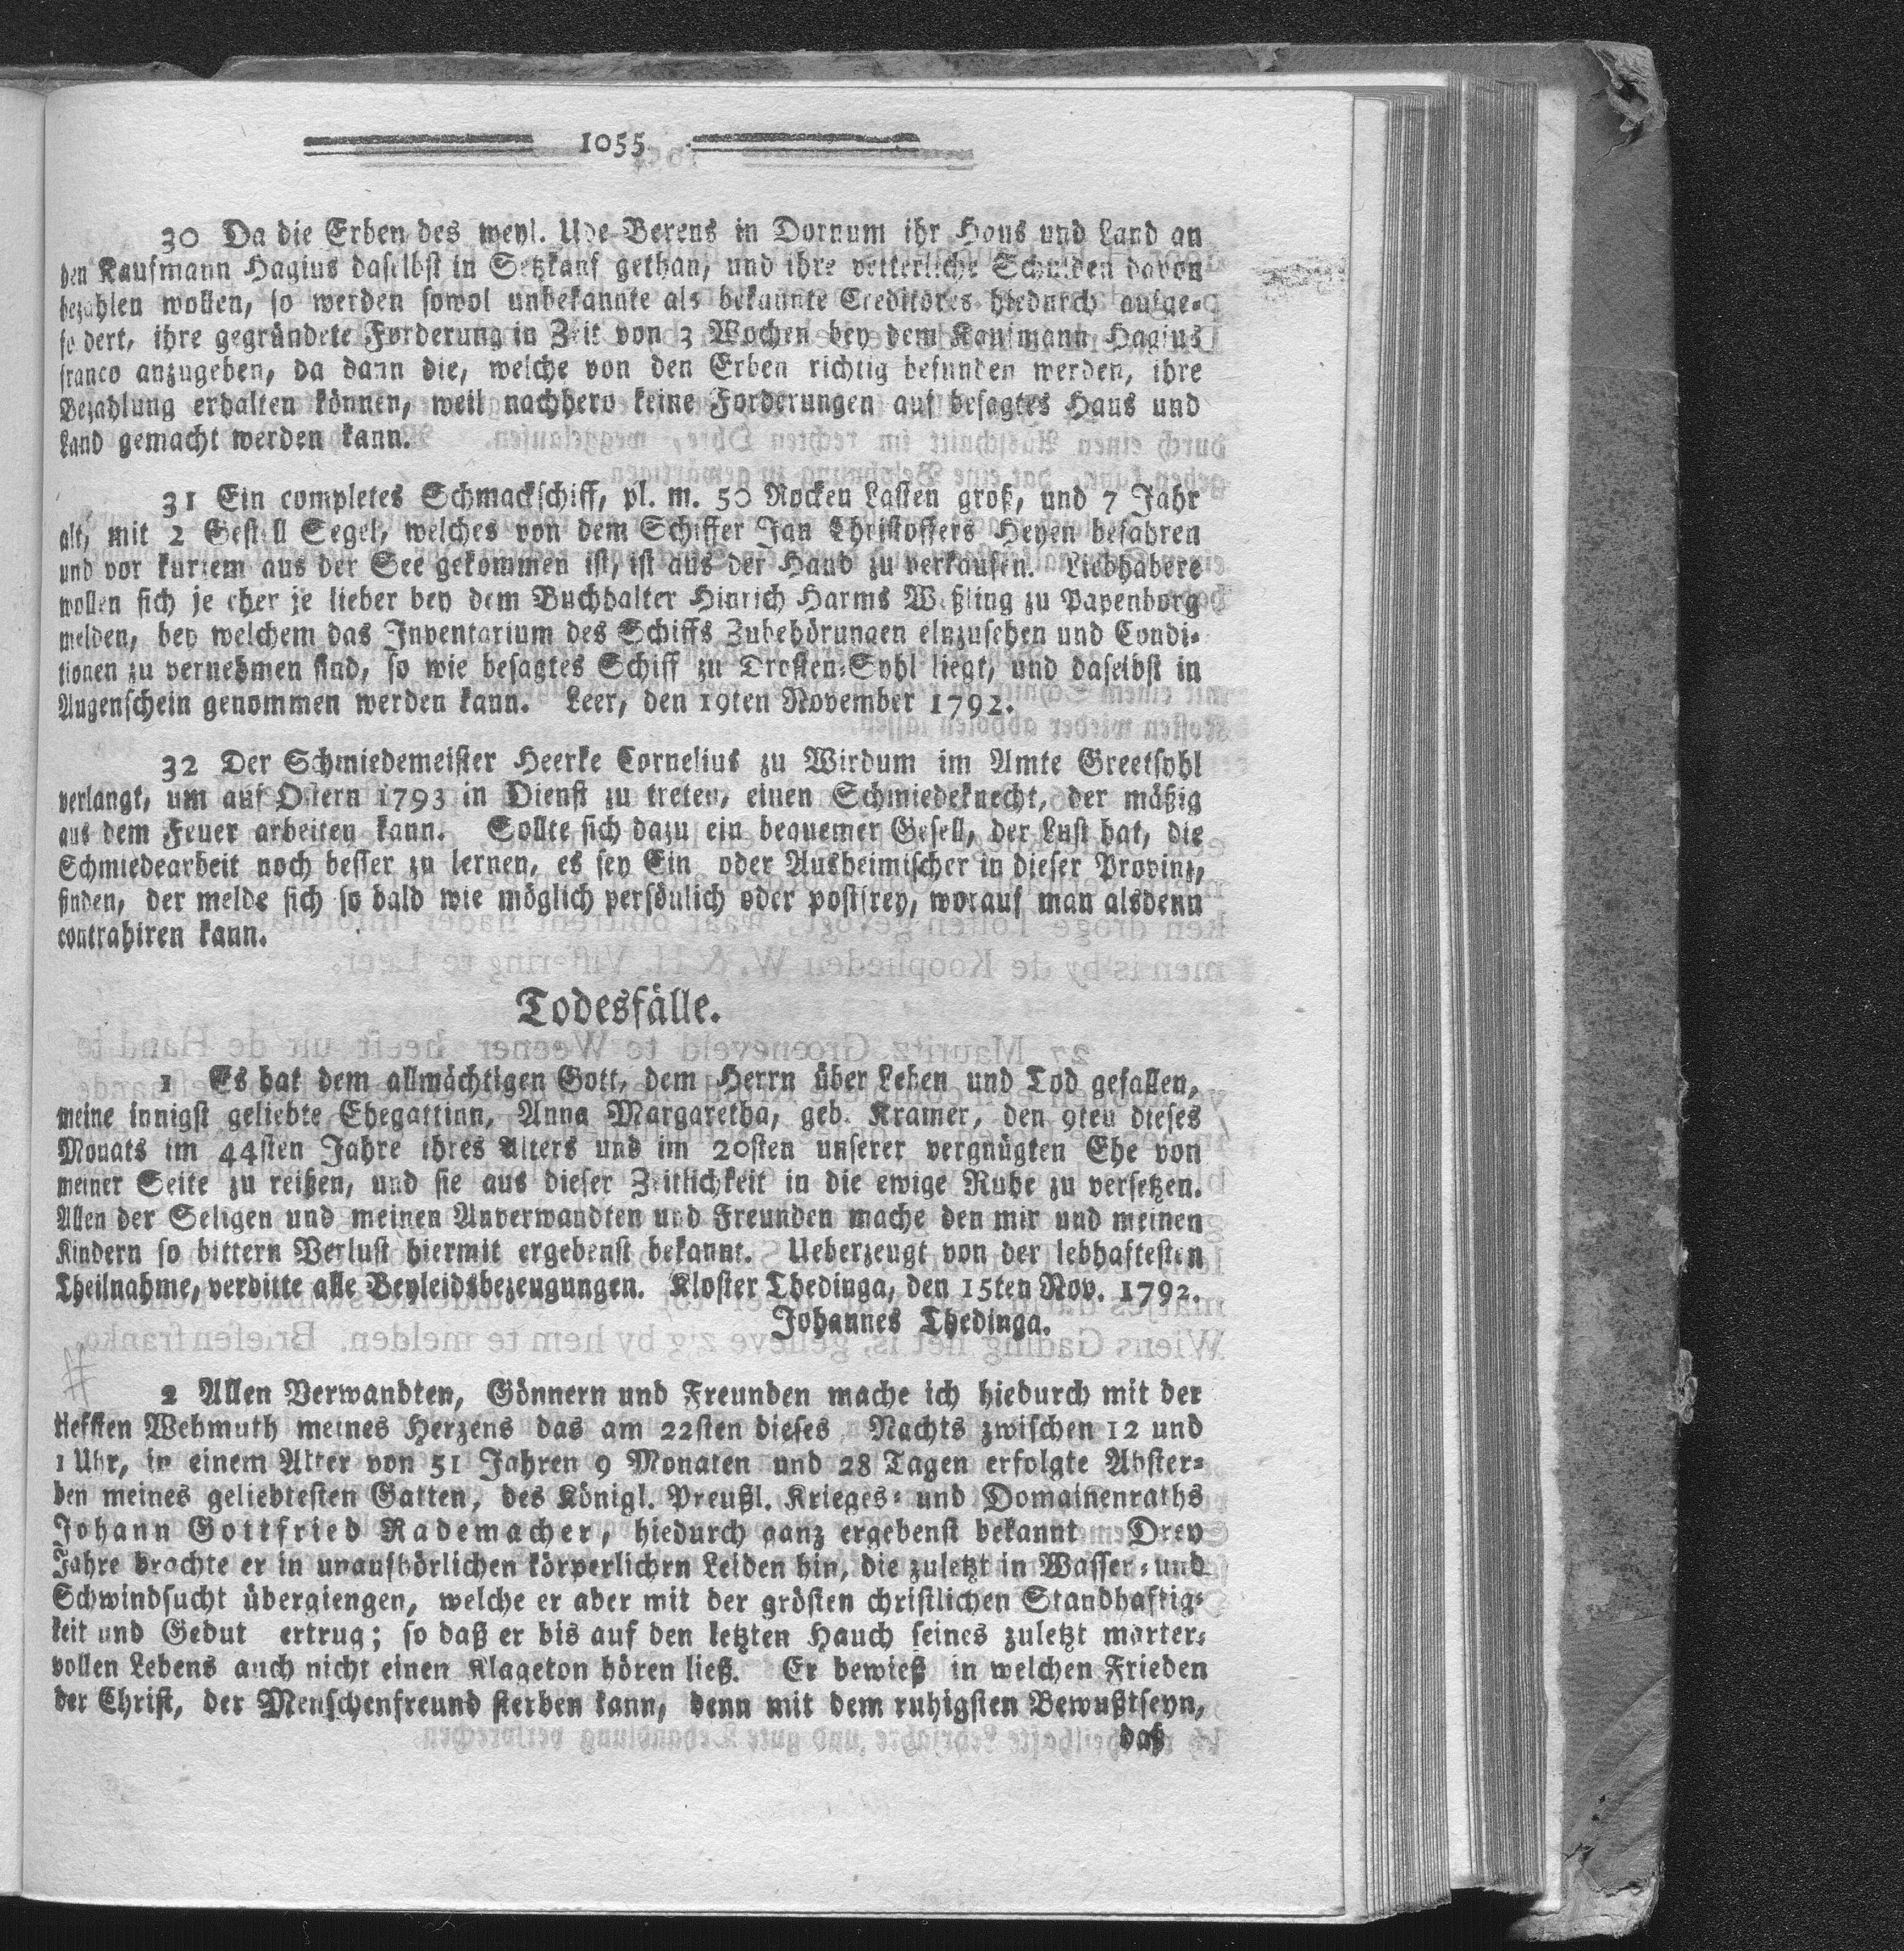 1055
30 Da die Erben des weyl. Ude Berens in Dornum ihr Haus und Land an
den Kaufmann Hagius daselbst in Setzkauf gethan, und ihre vetterliche Schulden davon
bezahlen wollen, so werden sowol unbekannte als bekannte Creditores hiedurch aufge-
fodert, ihre gegründete Forderung in Zeit von 3 Wochen bey dem Kaufmann Hagius
franco anzugeben, da dann die, welche von den Erben richtig befunden werden, ihre
Bezahlung erhalten können, weil nachhero keine Forderungen auf besagtes Haus und
Land gemacht werden kann.
31 Ein completes Schmackschiff, pl. m. 50 Rocken Lasten groß, und 7 Jahr
alt, mit 2 Gestell Segel, welches von dem Schiffer Jan Christoffers Heyen befahren
und vor kurzem aus der See gekommen ist, ist aus der Hand zu verkaufen. Liebhabere
wollen sich je eher je lieber bey dem Buchhalter Hinrich Harms Weßling zu Papenborg
melden, bey welchem das Inventarium des Schiffs Zubehörungen einzusehen und Condi-
tionen zu vernehmen sind, so wie besagtes Schiff zu Drosten-Syhl liegt, und daselbst in
Augenschein genommen werden kann. Leer, den 19ten November 1792.
32 Der Schmiedemeister Heerke Cornelius zu Wirdum im Amte Greetsyhl
verlangt, um auf Ostern 1793 in Dienst zu treten, einen Schmiedeknecht, der mäßig
aus dem Feuer arbeiten kann. Sollte sich dazu ein bequemer Gesell, der Lust hat, die
Schmiedearbeit noch besser zu lernen, es sey Ein oder Ausheimischer in dieser Provinz,
finden, der melde sich so bald wie möglich persönlich oder postfrey, worauf man alsdenn
contrahiren kann.
Todesfälle.
1 Es hat dem allmächtigen Gott, dem Herrn über Leben und Tod gefallen,
meine innigst geliebte Ehegattinn, Anna Margaretha, geb. Kramer, den 9ten dieses
Monats im 44sten Jahre ihres Alters und im 20sten unserer vergnügten Ehe von
meiner Seite zu reißen, und sie aus dieser Zeitlichkeit in die ewige Ruhe zu versetzen.
Allen der Seligen und meinen Anverwandten und Freunden mache den mir und meinen
Kindern so bittern Verlust hiermit ergebenst bekannt. Ueberzeugt von der lebhaftesten
Theilnahme, verbitte alle Beyleidsbezeugungen. Kloster Thedinga, den 15ten Nov. 1792.
Johannes Thedinga.
2 Allen Verwandten, Gönnern und Freunden mache ich hiedurch mit der
tiefsten Wehmuth meines Herzens das am 22sten dieses Nachts zwischen 12 und
1 Uhr, in einem Alter von 51 Jahren 9 Monaten und 28 Tagen erfolgte Abster-
ben meines geliebtesten Gatten, des Königl. Preußl. Krieges- und Domainenraths
Johann Gottfried Rademacher, hiedurch ganz ergebenst bekannt Drey
Jahre brachte er in unaufhörlichen körperlichrn Leiden hin, die zuletzt in Wasser- und
Schwindsucht übergiengen, welche er aber mit der grösten christlichen Standhaftig-
keit und Gedut ertrug; so daß er bis auf den letzten Hauch seines zuletzt marter-
vollen Lebens auch nicht einen Klageton hören ließ. Er bewieß in welchen Frieden
der Christ, der Menschenfreund sterben kann, denn mit dem ruhigsten Bewußtseyn,
daß